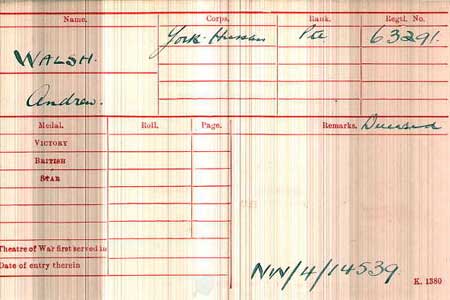 Name. Corps. Rank. Regtl. No.
WALSH. York. Hussars Pte 63291.
Andrew.
Medal. Roll. Page. Remarks. Deceased
VICTORY
BRITISH
STAR
Theatre of War first served in
Date of entry therein
NW/4/14539. K. 1380